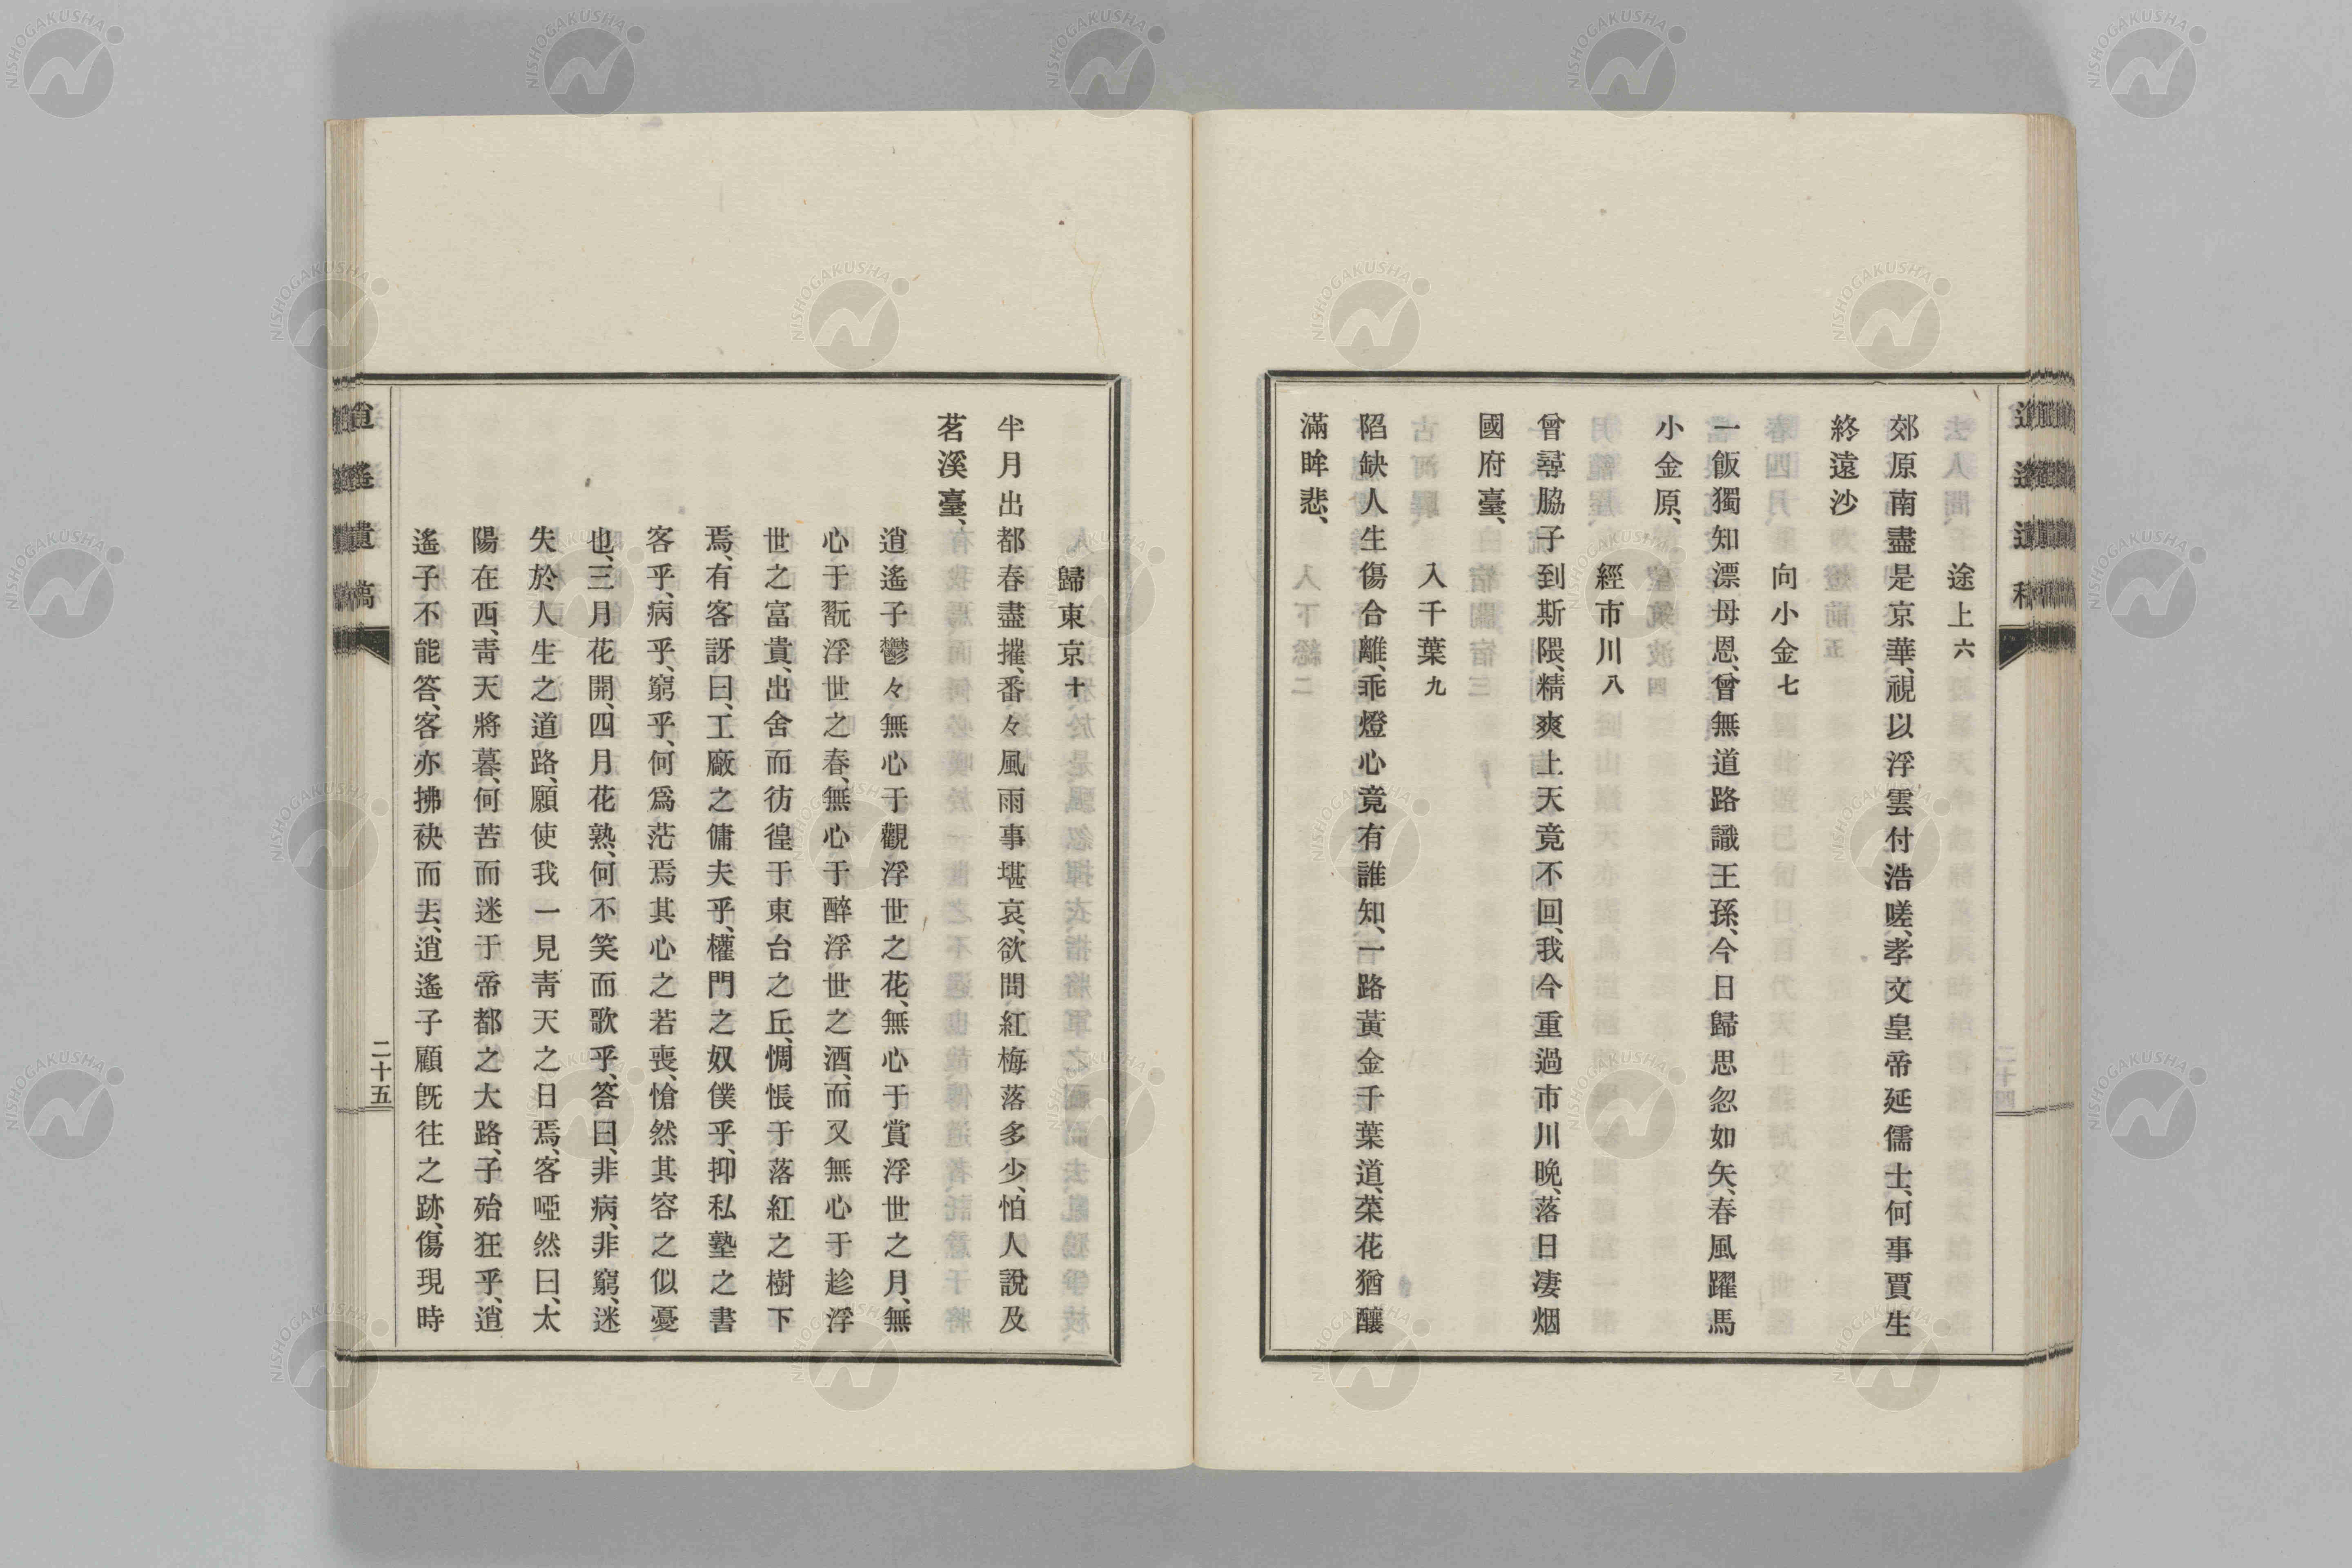 途上六
郊原南盡是京華、視以浮雲付浩嗟、孝文皇帝延儒士、何事賈生
終遠沙
向小金七
一飯獨知漂母恩、曾無道路識王孫、今日歸思忽如矢、春風躍馬
小金原、
經市川八
曾尋脇子到斯隈、精爽上天竟不回、我今重過市川晩、落日凄烟
國府臺、
入千葉九
陷缺人生傷合離、乖燈心竟有誰知、一路黃金千葉道、菜花猶釀
滿眸悲、
歸東京十
半月出都春盡摧、番々風雨事堪哀、欲問紅梅落多少、怕人說及
茗溪臺、
逍遙子鬱々、無心于觀浮世之花、無心于賞浮世之月、無
心于翫浮世之春、無心于醉浮世之酒、而又無心于趁浮
世之富貴、出舍而彷徨于東台之丘、惆悵于落紅之樹下
焉、有客訝曰、工廠之傭夫乎、權門之奴僕乎、抑私塾之書
客乎、病乎、窮乎、何爲茫焉其心之若喪、愴然其容之似憂
也、三月花開、四月花熟、何不笑而歌乎、答曰、非病、非窮、迷
失於人生之道路、願使我一見靑天之日焉、客啞然曰、太
陽在西、靑天將暮、何苦而迷于帝都之大路、子殆狂乎、逍
遙子不能答、客亦拂袂而去、逍遙子顧旣往之跡、傷現時
逍遙遺稿
二十五